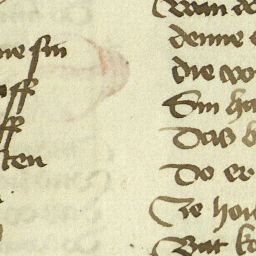 ne sin
off
ff
ten
Wan de
denne
die wo
Sin ha
Das b
Do er
Ze hou
Bat ko